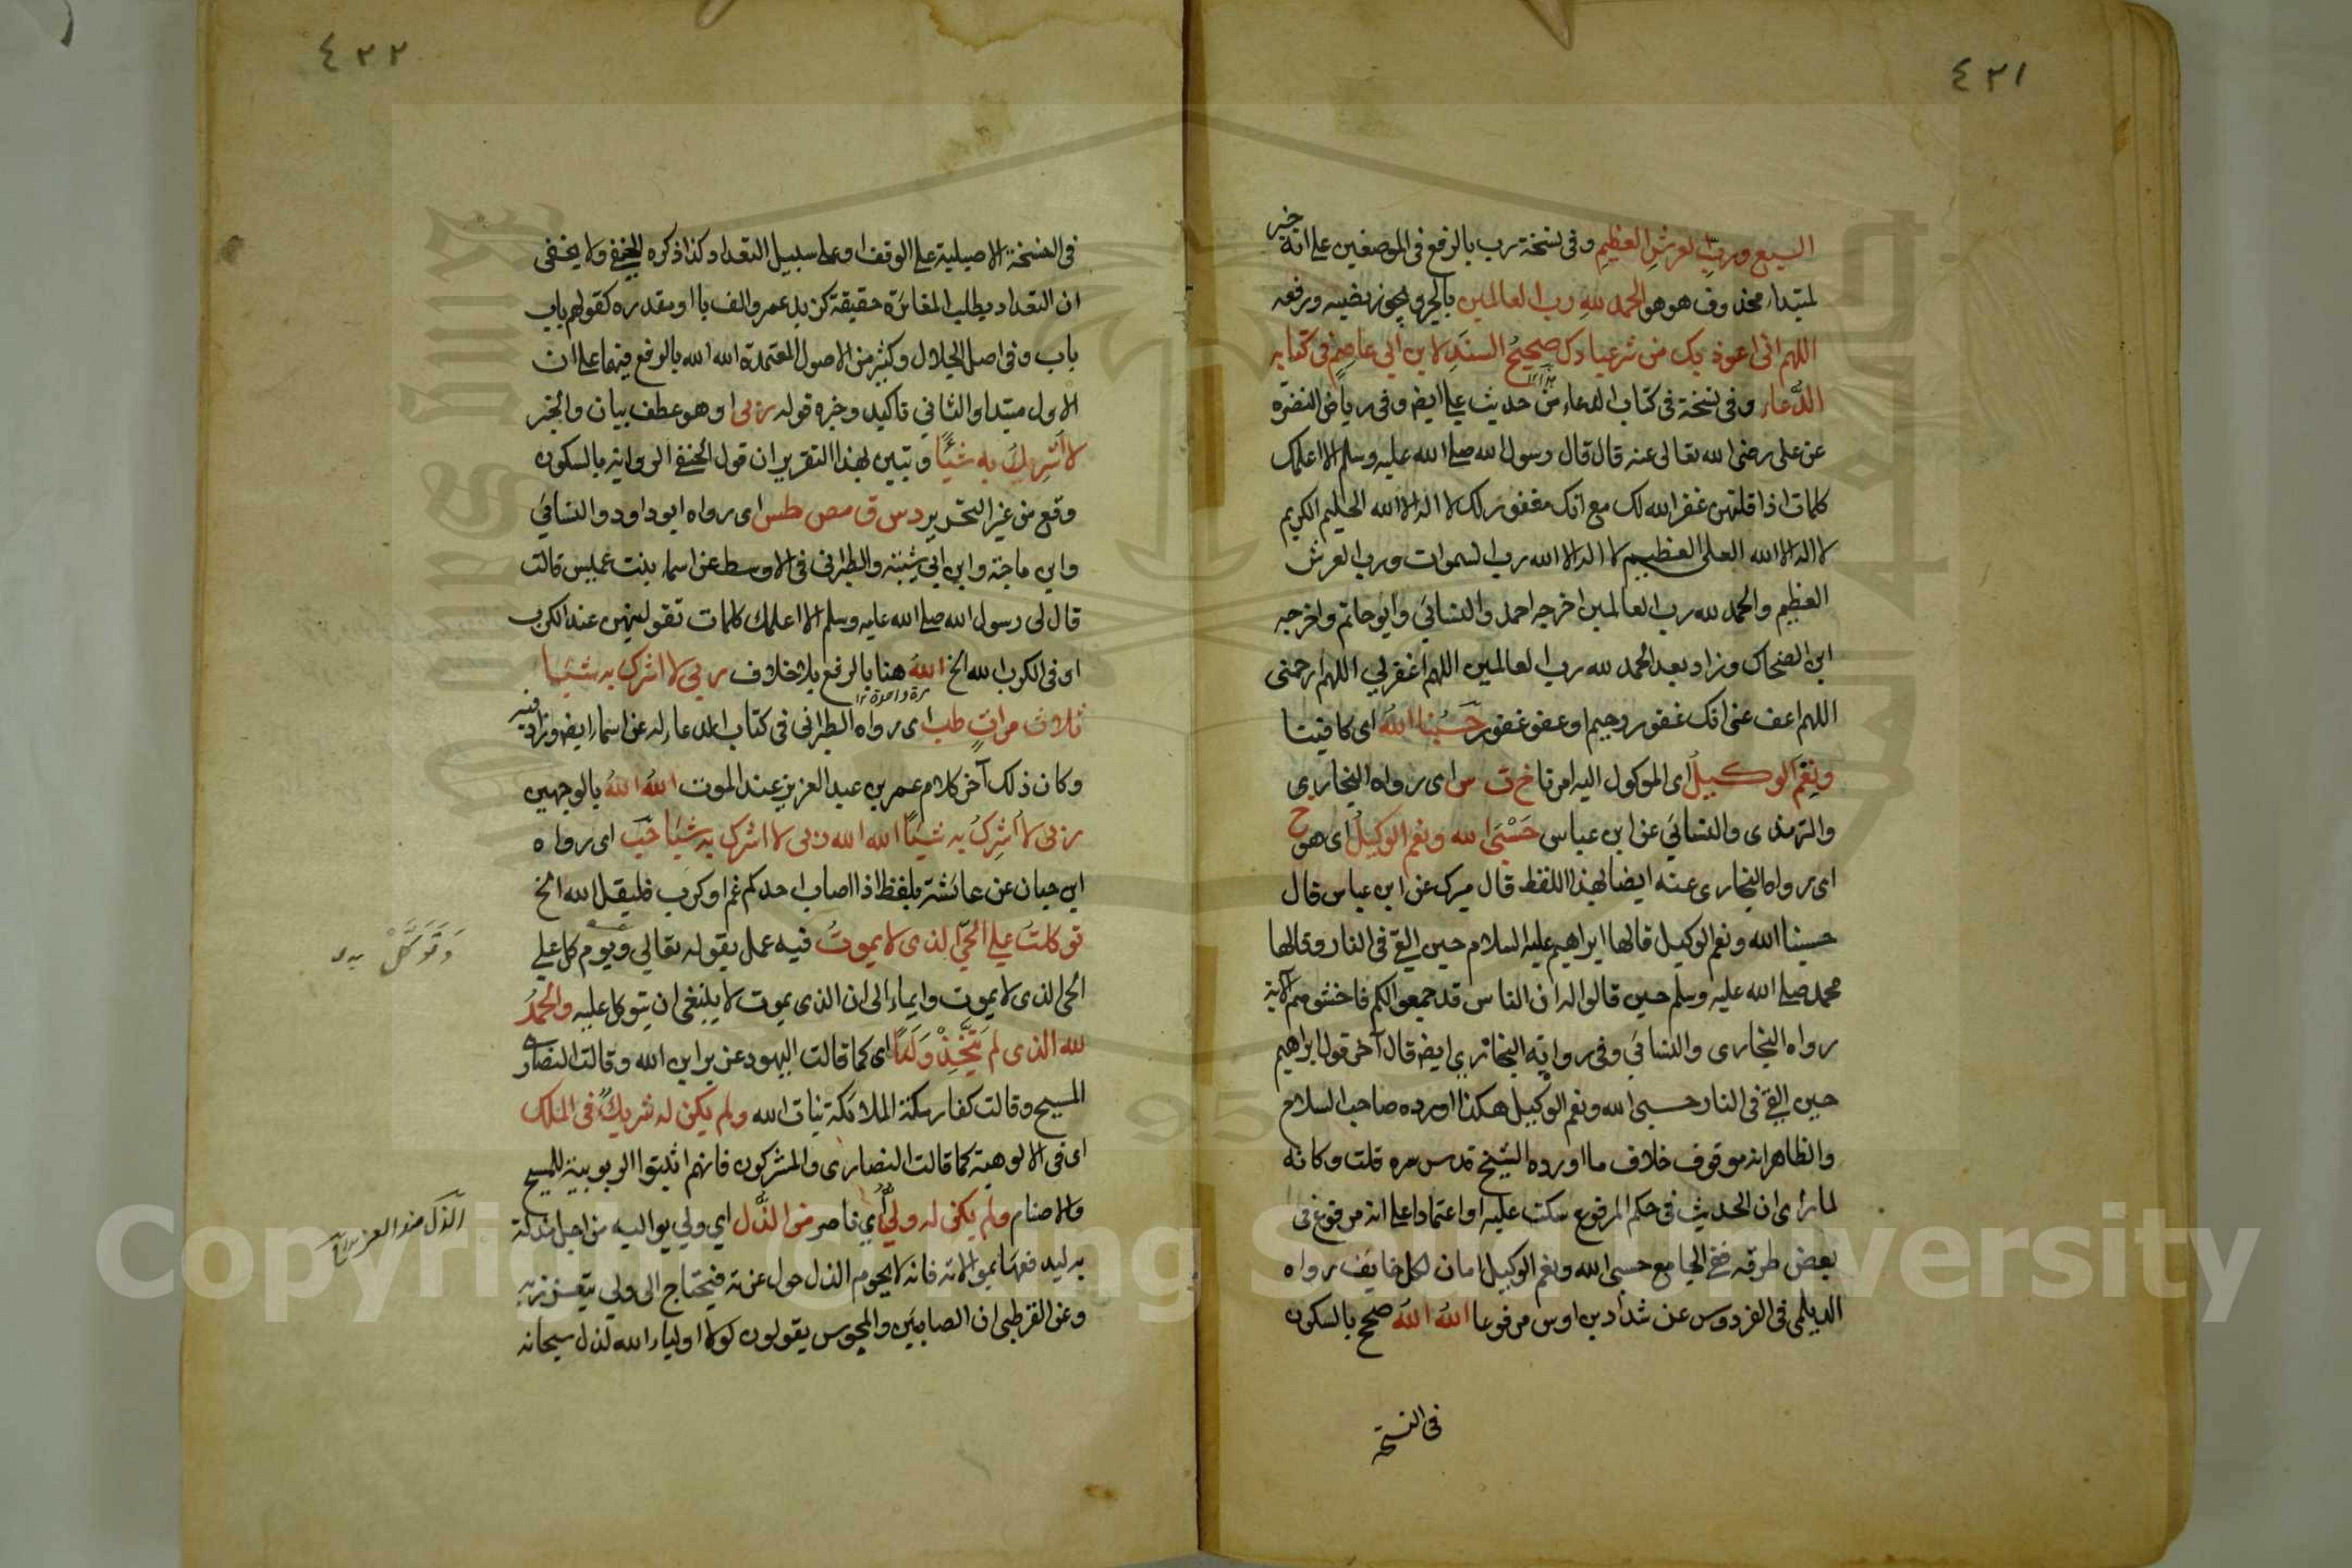 ٤٢١
السبع ورب العرش العظيم وفي نسخة رب بالرفع في الموضعين على انه خبر
لمبتداء محذوف هو هو الحمد لله رب العالمين بالجر ويجوز نصبه ورفعه
اللهم اني اعوذ بك من شر عبادك صحيح السند لابن ابي عاصم في كتابه
الدعاء وفي نسخة في كتاب الدعاء من حديث علي ايضا وفي رياض النضرة
عن علي رضي الله تعالى عنه قال قال رسول الله صلى الله عليه وسلم الا اعلمك
كلمات اذا قلتهن غفر الله لك مع انك مغفور لك لا اله الا الله الحليم الكريم
لا اله الا الله العلي العظيم لا اله الا الله رب السموات ورب العرش
العظيم والحمد لله رب العالمين اخرجه احمد والنسائي وابو حاتم واخرجه
ابن الضحاك وزاد بعد الحمد لله رب العالمين اللهم اغفر لي اللهم ارحمني
اللهم اعف عني انك غفور رحيم او عفو غفور حسبنا الله اي كافينا
ونعم الوكيل اي الموكول اليه امرنا خ ت س اي رواه البخاري
والترمذي والنسائي عن ابن عباس حسبي الله ونعم الوكيل اي هو خ
اي رواه البخاري عنه ايضا بهذا اللفظ قال ميرك عن ابن عباس قال
حسبنا الله ونعم الوكيل قالها ابراهيم عليه السلام حين القي في النار وقالها
محمد صلى الله عليه وسلم حين قالوا له ان الناس قد جمعوا لكم فاخشوهم الاية
رواه البخاري والنسائي وفي رواية البخاري ايضا قال آخر قول ابراهيم
حين القي في النار حسبي الله ونعم الوكيل هكذا اورده صاحب السلاح
والظاهر انه موقوف خلاف ما اورده الشيخ قدس سره قلت وكانه
لما راى ان الحديث في حكم المرفوع سكت عليه او اعتمادا على انه مرفوع في
بعض طرقه ففي الجامع حسبي الله ونعم الوكيل امان لكل خايف رواه
الديلمي في الفردوس عن شداد بن اوس مرفوعا الله الله صح بالسكون
في النسخة
٤٢٢
في النسخة الاصيلية على الوقف او على سبيل التعداد كذا ذكره الحنفي ولا يخفى
ان التعداد يطلب المغائرة حقيقة كزيد عمرو الف با او مقدره كقولهم باب
باب وفي اصل الجلال وكثير من الاصول المعتمدة الله الله بالرفع فيهما على ان
الاول مبتدا والثاني تاكيد وخبره قوله ربي او هو عطف بيان والخبر
لا اشرك به شيئا وتبين بهذا التقرير ان قول الحنفي الرواية بالسكون
وقع من غير التحرير د س ق مص طس اي رواه ابو داود والنسائي
وابن ماجة وابن ابي شيبة والطبراني في الاوسط عن اسماء بنت عميس قالت
قال لي رسول الله صلى الله عليه وسلم الا اعلمك كلمات تقولينهن عند الكرب
او في الكرب الله الخ الله هنا بالرفع بلا خلاف ربي لا اشرك به شيئا
مرة واحدة
ثلاث مرات طب اي رواه الطبراني في كتاب الدعاء له عن اسماء ايضا وزاد فيه
وكان ذلك آخر كلام عمر بن عبد العزيز عند الموت الله الله بالوجهين
ربي لا اشرك به شيئا الله الله ربي لا اشرك به شيئا حب اي رواه
ابن حبان عن عائشة بلفظ اذا اصاب احدكم غم او كرب فليقل الله الخ
توكلت على الحي الذي لا يموت فيه عمل بقوله تعالى ويوم كل على
وَتَوَكَّلْ
الحي الذي لا يموت وايماء الى ان الذي يموت لا ينبغي ان يتوكل عليه والحمد
لله الذي لم يتخذ ولدا اي كما قالت اليهود عزير ابن الله وقالت النصارى
المسيح وقالت كفار مكة الملائكة بنات الله ولم يكن له شريك في الملك
اي في الالوهية كما قالت النصارى والمشركون فانهم اثبتوا الربوبية للمسيح
والاصنام ولم يكن له ولي اي ناصر من الذل اي ولي يواليه من اجل مذلة
الذل ضد العز
به ليدفعها بموالاته فانه لا يحوم الذل حول عزته فيحتاج الى ولي يتعزز به
وعن القرظي ان الصابئين والمجوس يقولون لولا اولياء الله لذل سبحانه
Copyright © King Saud University
1957